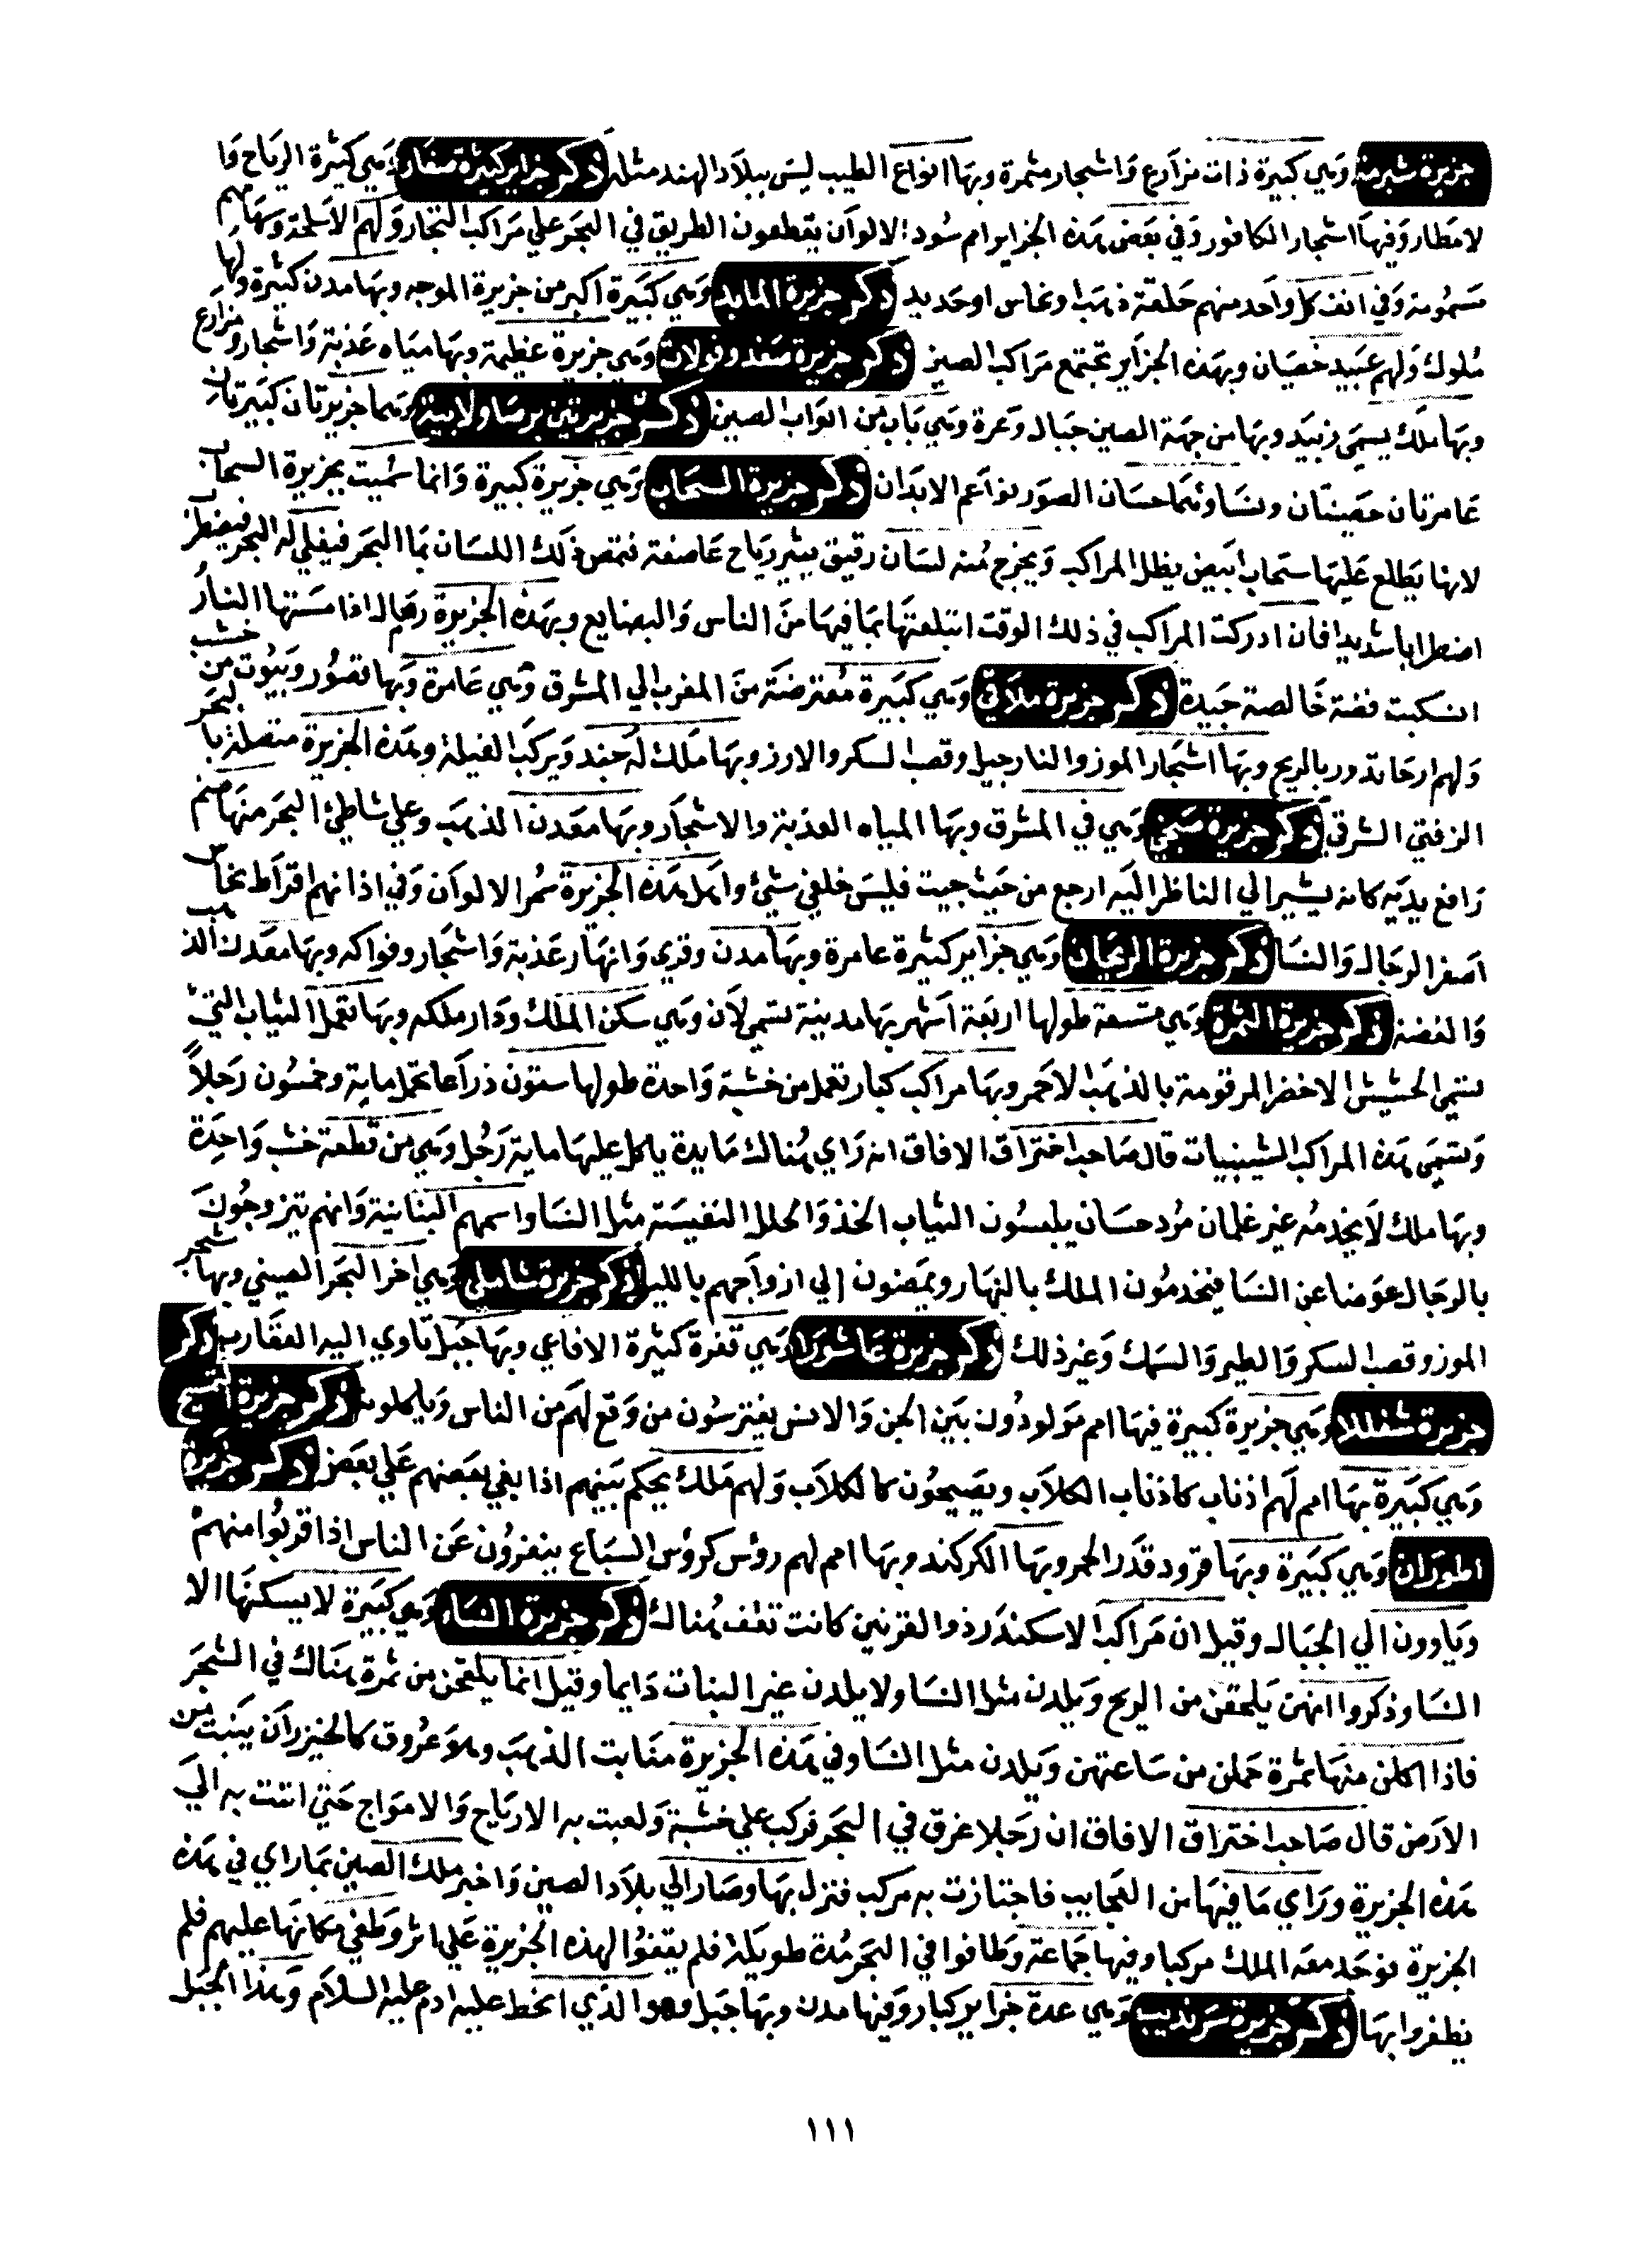 جزيرة شبرمة وهي كبيرة ذات مزارع واشجار مثمرة وبها انواع الطيب ليس ببلاد الهند مثله ذكر جزاير كثيرة وهي كثيرة الرياح وا
لامطار وفيها اشجار الكافور وفي بعض هذه الجزاير امم سود الالوان يقطعون الطريق في البحر علي مراكب التجار ولهم الاسلحة وسهامهم
مسمومة وفي انف كل واحد منهم حلقة ذهب او نحاس او حديد ذكر جزيرة المايد وهي كبيرة اكبر من جزيرة الموجه وبها مدن كثيرة ولها
ملوك ولهم عبيد خصيان وبهذه الجزاير تجتمع مراكب الصين ذكر جزيرة صغد وفولات وهي جزيرة عظيمة وبها مياه عذبة واشجار ومزارع
وبها ملك يسمي زنبيد وبها من جهة الصين جبال وعرة وهي باب من ابواب الصين ذكر جزيرتين برسا ولابية وهما جزيرتان كبيرتان
عامرتان حصينتان ونساوهما حسان الصور نواعم الابدان ذكر جزيرة السحاب وهي جزيرة كبيرة وانما سميت بجزيرة السحاب
لانها يطلع عليها سحاب ابيض يظل المراكب ويخرج منه لسان رقيق يثير رياح عاصفة فيمص ذلك اللسان بما البحر فيغلي له البحر فيضطرب
اضطرابا شديدا فان ادركت المراكب في ذلك الوقت ابتلعتها بما فيها من الناس والبضايع وبهذه الجزيرة رمال اذا مستها النار
انسكبت فضة خالصة جيدة ذكر جزيرة ملاي وهي كبيرة معترضة من المغرب الي المشرق وهي عامرة وبها قصور وبيوت من خشب
ولهم ارحا تدور بالريح وبها اشجار الموز والنارجيل وقصب السكر والارز وبها ملك له جند ويركب الفيلة وهذه الجزيرة متصلة بالبحر
الزفتي الشرقي ذكر جزيرة صبح وهي في المشرق وبها المياه العذبة والاشجار وبها معدن الذهب وعلي شاطئ البحر منها صنم
رافع يديه كانه يشير الي الناظر اليه ارجع من حيث جيت فليس خلفي شيئ واهل هذه الجزيرة سمر الالوان وفي اذانهم اقراط نحاس
اصفر الرجال والنسا ذكر جزيرة الريحان وهي جزاير كثيرة عامرة وبها مدن وقري وانهار عذبة واشجار وفواكه وبها معدن الذهب
والفضة ذكر جزيرة وهي متسعة طولها اربعة اشهر بها مدينة تسمي لان وهي سكن الملك ودار ملكه وبها تعمل الثياب التي
تسمي الحشيش الاخضر المرقومة بالذهب الاحمر وبها مراكب كبار تعمل من خشبة واحدة طولها ستون ذراعا تحمل ماية وخمسون رجلاً
وتسمي هذه المراكب الشينيات قال صاحب اختراق الافاق انه راي هناك مايدة ياكل عليها ماية رجل وهي من قطعة خشب واحدة
وبها ملك لا يخدمه غير غلمان مرد حسان يلبسون الثياب الخذ والحلل النفيسة مثل النسا واسمهم البنانية وانهم يتزوجون
بالرجال عوضا عن النسا فيخدمون الملك بالنهار ويمضون الي ازواجهم بالليل ذكر جزيرة شاملي وهي اخر البحر الصيني وبها شجر
الموز وقصب السكر والطير والسمك وغير ذلك ذكر جزيرة عاشورا وهي قفرة كثيرة الافاعي وبها جبل تاوي اليه العقارب ذكر
جزيرة شفللا وهي جزيرة كبيرة فيها امم مولودون بين الجن والانس يفترسون من وقع لهم من الناس وياكلونه ذكر جزيرة
وهي كبيرة بها امم لهم اذناب كاذناب الكلاب ويصيحون كالكلاب ولهم ملك يحكم بينهم اذا بغي بعضهم علي بعض ذكر جزيرة
اطوران وهي كبيرة وبها قرود قدر الحمر وبها الكركند وبها امم لهم رؤس كرؤس السباع ينفرون عن الناس اذا قربوا منهم
وياوون الي الجبال وقيل ان مراكب الاسكندر ذو القرنين كانت تقف هناك ذكر جزيرة النسا وهي كبيرة لا يسكنها الا
النسا وذكروا انهن يلحقن من الريح ويلدن مثل النسا ولا يلدن غير البنات دايما وقيل انما يلقحن من ثمرة هناك في الشجر
فاذا اكلن منها ثمرة حملن من ساعتهن ويلدن مثل النسا وفي هذه الجزيرة منابت الذهب وله عروق كالخيزران ينبت من
الارض قال صاحب اختراق الافاق ان رجلا غرق في البحر فركب علي خشبة ولعبت به الارياح والامواج حتي اتت به الي
هذه الجزيرة وراي ما فيها من العجايب فاجتازت به مركب فنزل بها وصار الي بلاد الصين واخبر ملك الصين بما راي في هذه
الجزيرة فوجد معه الملك مركبا وفيها جماعة وطافوا في البحر مدة طويلة فلم يقفوا لهذه الجزيرة علي اثر وطفي مكانها عليهم فلم
يظفروا بها ذكر جزيرة سرنديب وهي عدة جزاير كبار وفيها مدن وبها جبل وهو الذي انحط عليه ادم عليه السلام وهذا الجبل
١١١